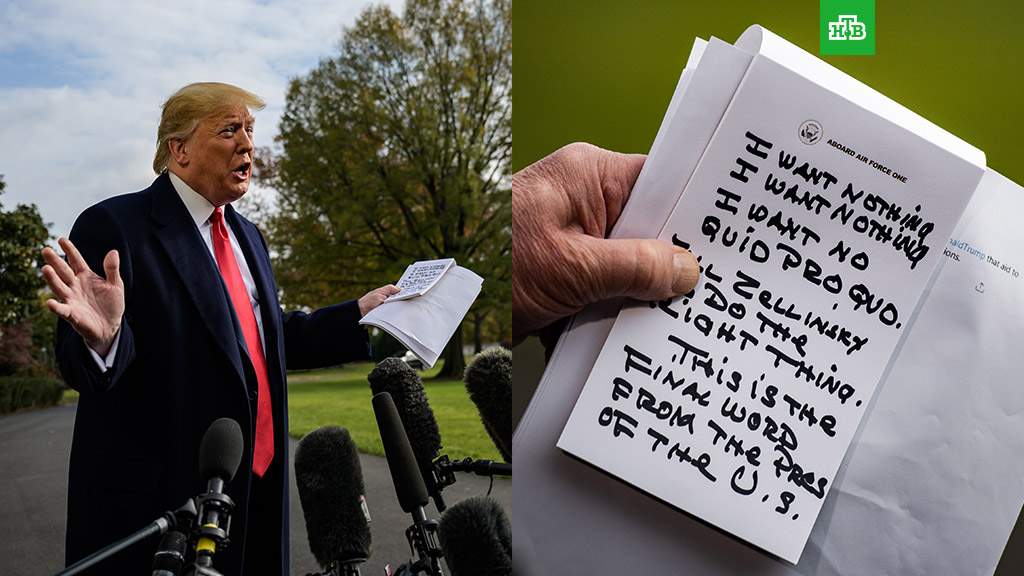 НТВ
ABOARD AIR FORCE ONE
I WANT NOTHING
I WANT NOTHING
I WANT NO
QUID PRO QUO.
ZELLINSKY
DO THE
RIGHT THING.
THIS IS THE
FINAL WORD
FROM THE PRES
OF THE U.S.
naldTrump that aid to
ions.